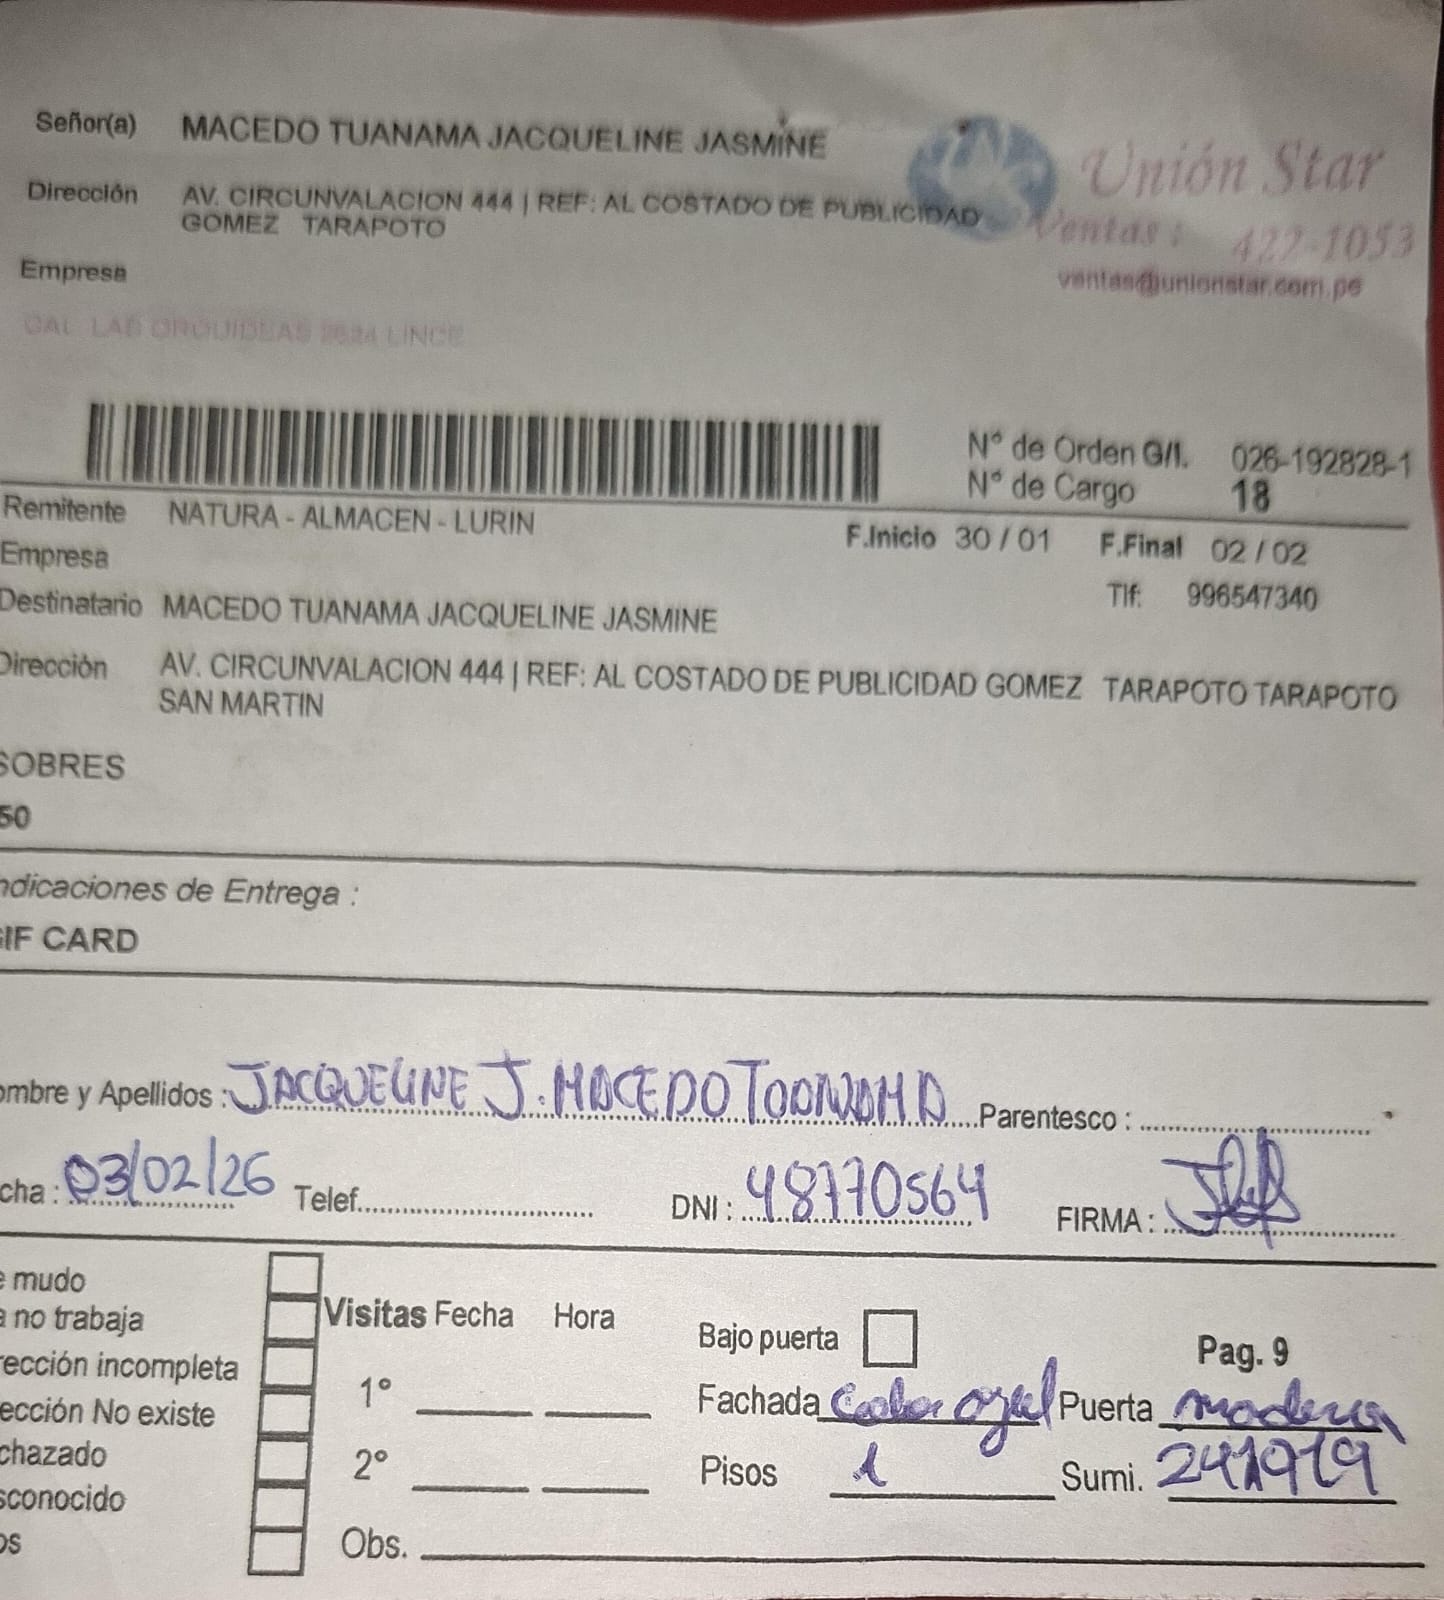 Señor(a) MACEDO TUANAMA JACQUELINE JASMINE
Dirección AV. CIRCUNVALACION 444 | REF: AL COSTADO DE PUBLICIDAD
GOMEZ TARAPOTO
Unión Star
Ventas : 422-1053
ventas@unionstar.com.pe
Empresa
CAL LAS ORQUIDEAS 2634 LINCE
N° de Orden G/I. 026-192828-1
N° de Cargo 18
Remitente NATURA - ALMACEN - LURIN
F.Inicio 30 / 01 F.Final 02 / 02
Empresa
Tlf: 996547340
Destinatario MACEDO TUANAMA JACQUELINE JASMINE
Dirección AV. CIRCUNVALACION 444 | REF: AL COSTADO DE PUBLICIDAD GOMEZ TARAPOTO TARAPOTO
SAN MARTIN
SOBRES
50
ndicaciones de Entrega :
GIF CARD
ombre y Apellidos : JACQUELINE J. MACEDO TUANAMA Parentesco :
cha : 03/02/26 Telef. DNI : 48770564 FIRMA :
e mudo
a no trabaja
rección incompleta
ección No existe
chazado
sconocido
os
Visitas Fecha Hora
1°
2°
Obs.
Bajo puerta
Pag. 9
Fachada color azul Puerta madera
Pisos 1 Sumi. 241919